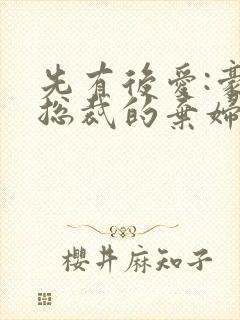 先有後愛:豪
總裁的棄婦
櫻井麻知子